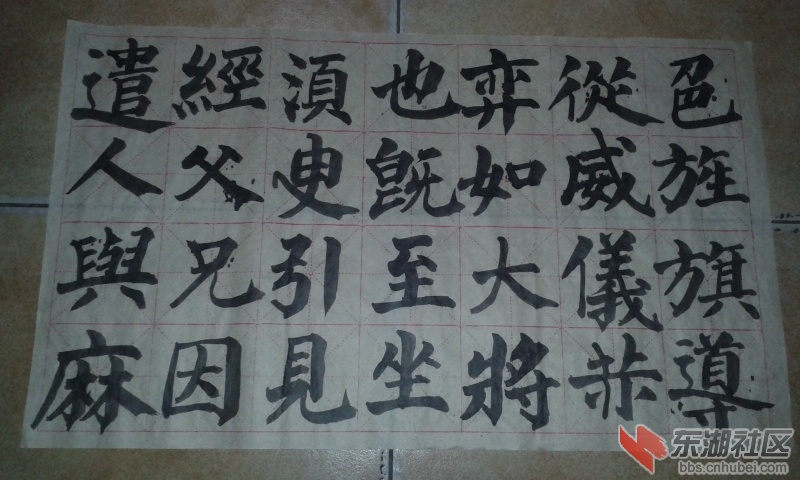 色旌旗導
從威儀赫
弈如大將
也既至坐
須臾引見
經父兄因
遣人與麻
东湖社区
bbs.cnhubei.com